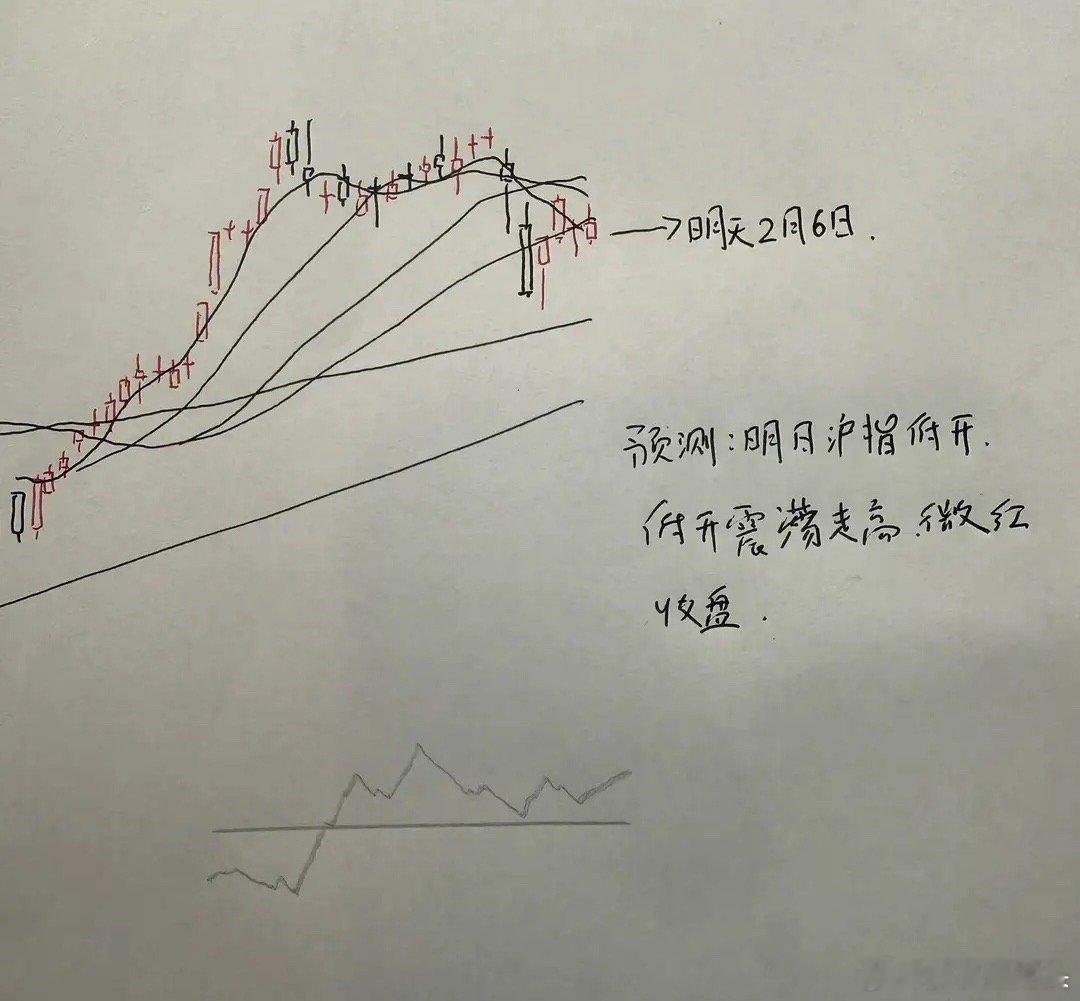 →明天2月6日.
预测:明日沪指低开.
低开震荡走高.微红
收盘.